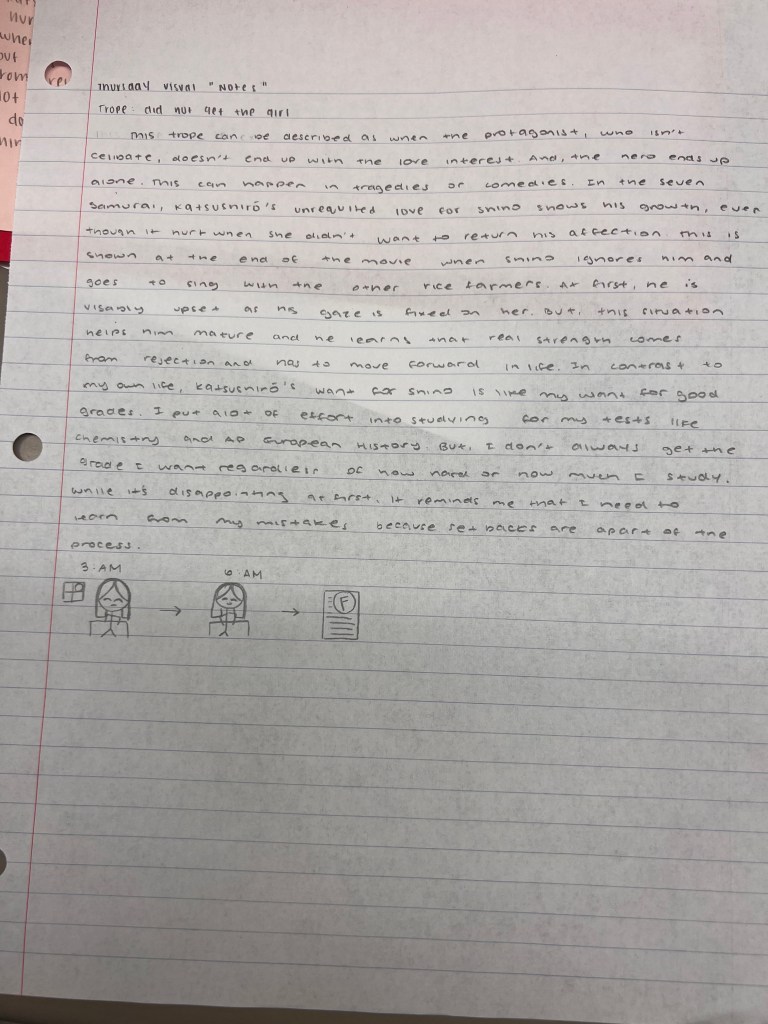 nur
whe
out
rom
do
Thursday visual "Notes"
Trope: did not get the girl
This trope can be described as when the protagonist, who isn't
celibate, doesn't end up with the love interest. And, the hero ends up
alone. This can happen in tragedies or comedies. In the seven
samurai, Katsushirō's unrequited love for shino shows his growth, even
though it hurt when she didn't want to return his affection. This is
shown at the end of the movie when shino ignores him and
goes to sing with the other rice farmers. At first, he is
visably upset as his gaze is fixed on her. But, this situation
helps him mature and he learns that real strength comes
from rejection and has to move forward in life. In contrast to
my own life, Katsushirō's want for shino is like my want for good
grades. I put alot of effort into studying for my tests like
chemistry and AP European History. But, I don't always get the
grade I want regardless of how hard or how much I study.
While it's disappointing at first, it reminds me that I need to
learn from my mistakes because setbacks are apart of the
process.
3:AM
6:AM
F